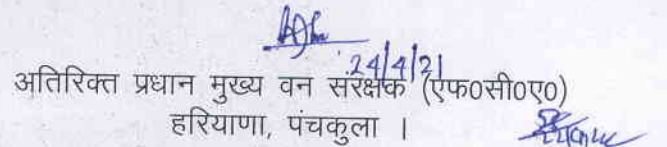 24/4/21
अतिरिक्त प्रधान मुख्य वन संरक्षक (एफ०सी०ए०)
हरियाणा, पंचकुला ।